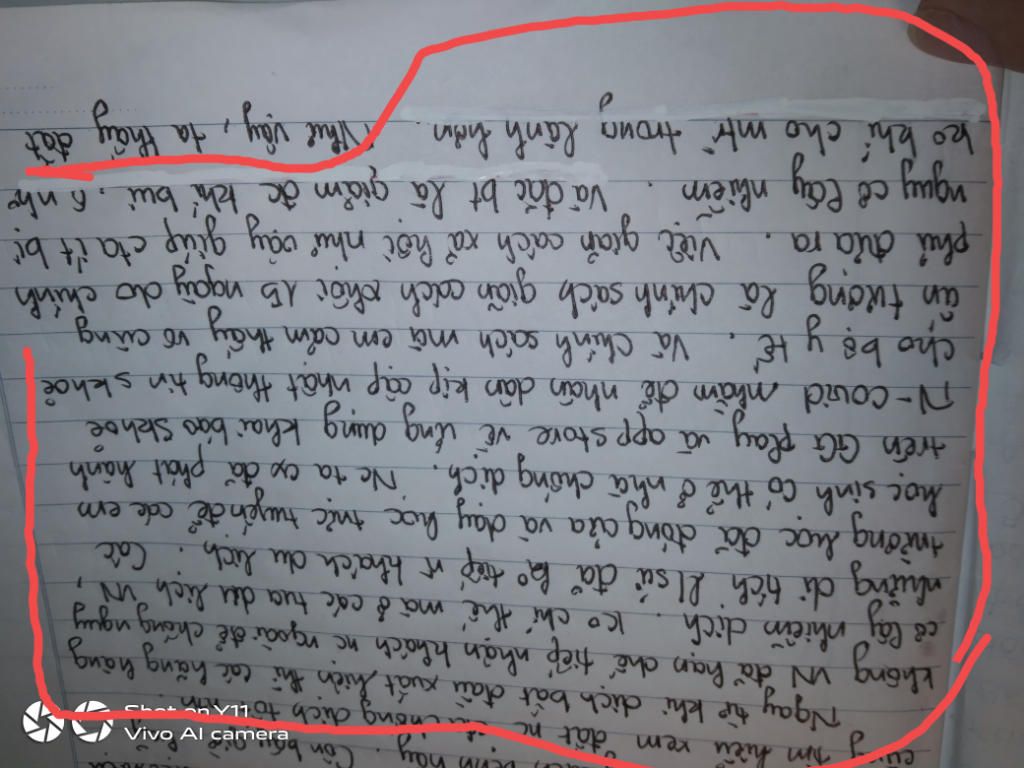 cùng tìm hiểu xem đất nc ta chống dịch
Ngay từ khi dịch bắt đầu xuất hiện thì các hãng hàng
không VN đã hạn chế tiếp nhận khách nc ngoài để chống nguy
cơ lây nhiễm dịch. Ko chỉ thế, mà ở các tua du lịch VN,
những di tích Lsử đã ko tiếp n khách du lịch. Các
trường học đã đóng cửa và dạy học trực tuyến để các em
học sinh có thể ở nhà chống dịch. Nc ta cx đã phát hành
trên GG play và app store về ứng dụng khai báo skhoẻ
N-covid nhằm để nhân dân kịp cập nhật thông tin skhoẻ
cho bộ y tế. Và chính sách mà em cảm thấy vô cùng
ấn tượng là chính sách giãn cách xhội 15 ngày do chính
phủ đưa ra. Việc giãn cách xã hội như vậy giúp cta ít bị
nguy cơ lây nhiễm. Và đặc bt là giảm đc khí bụi, ô nh
ko khí cho mtr trong lành hơn. Như vậy, ta thấy đất
Shot on Y11
Vivo AI camera